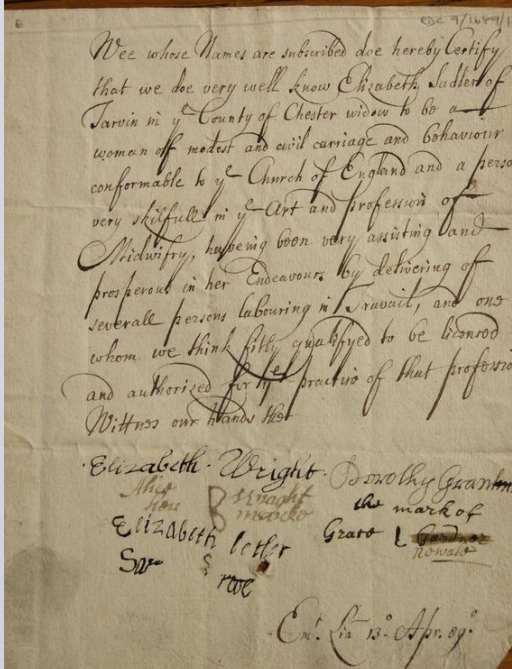 E
EDC 9/1689/1
Wee whose Names are subscribed doe hereby Certify
that we doe very well know Elizabeth Sadler of
Tarvin in yᵉ County of Chester widow to be a
woman off modest and civil carriage and behaviour
conformable to yᵉ Church of England and a perso
very skilfull in yᵉ Art and profession of
Midwifry, haveing been very assisting and
prosperous in her Endeavours by delivering of
severall persons labouring in Travail, and one
whom we think fitly qualifyed to be licensed
and authorised for the practice of that professio
Wittnes our hands the
Elizabeth Wright Dorothy
Alice
B
the mark of
Elizabeth
Grace L Gardner
13º Apr. 89º